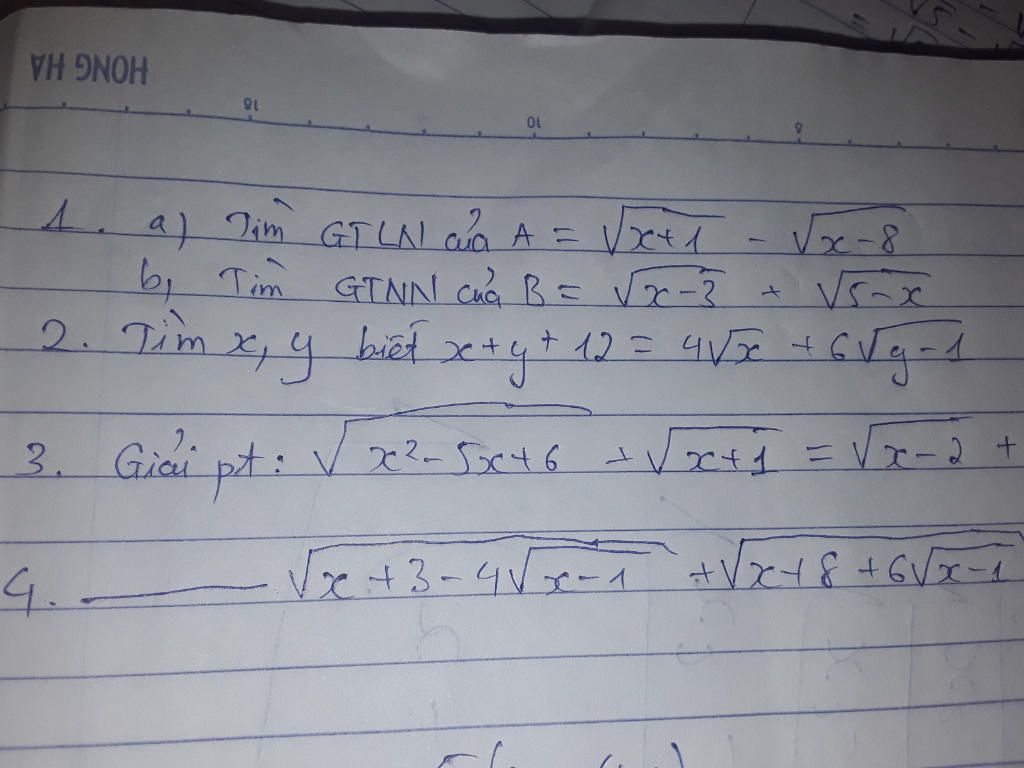 HONG HA
18 10 8
1. a) Tìm GTLN của A = √(x+1) - √(x-8)
b, Tìm GTNN của B = √(x-3) + √(5-x)
2. Tìm x, y biết x+y+12 = 4√x + 6√(y-1)
3. Giải pt: √(x²-5x+6) + √(x+1) = √(x-2) +
4. ——— √(x+3-4√(x-1)) + √(x+8+6√(x-1))